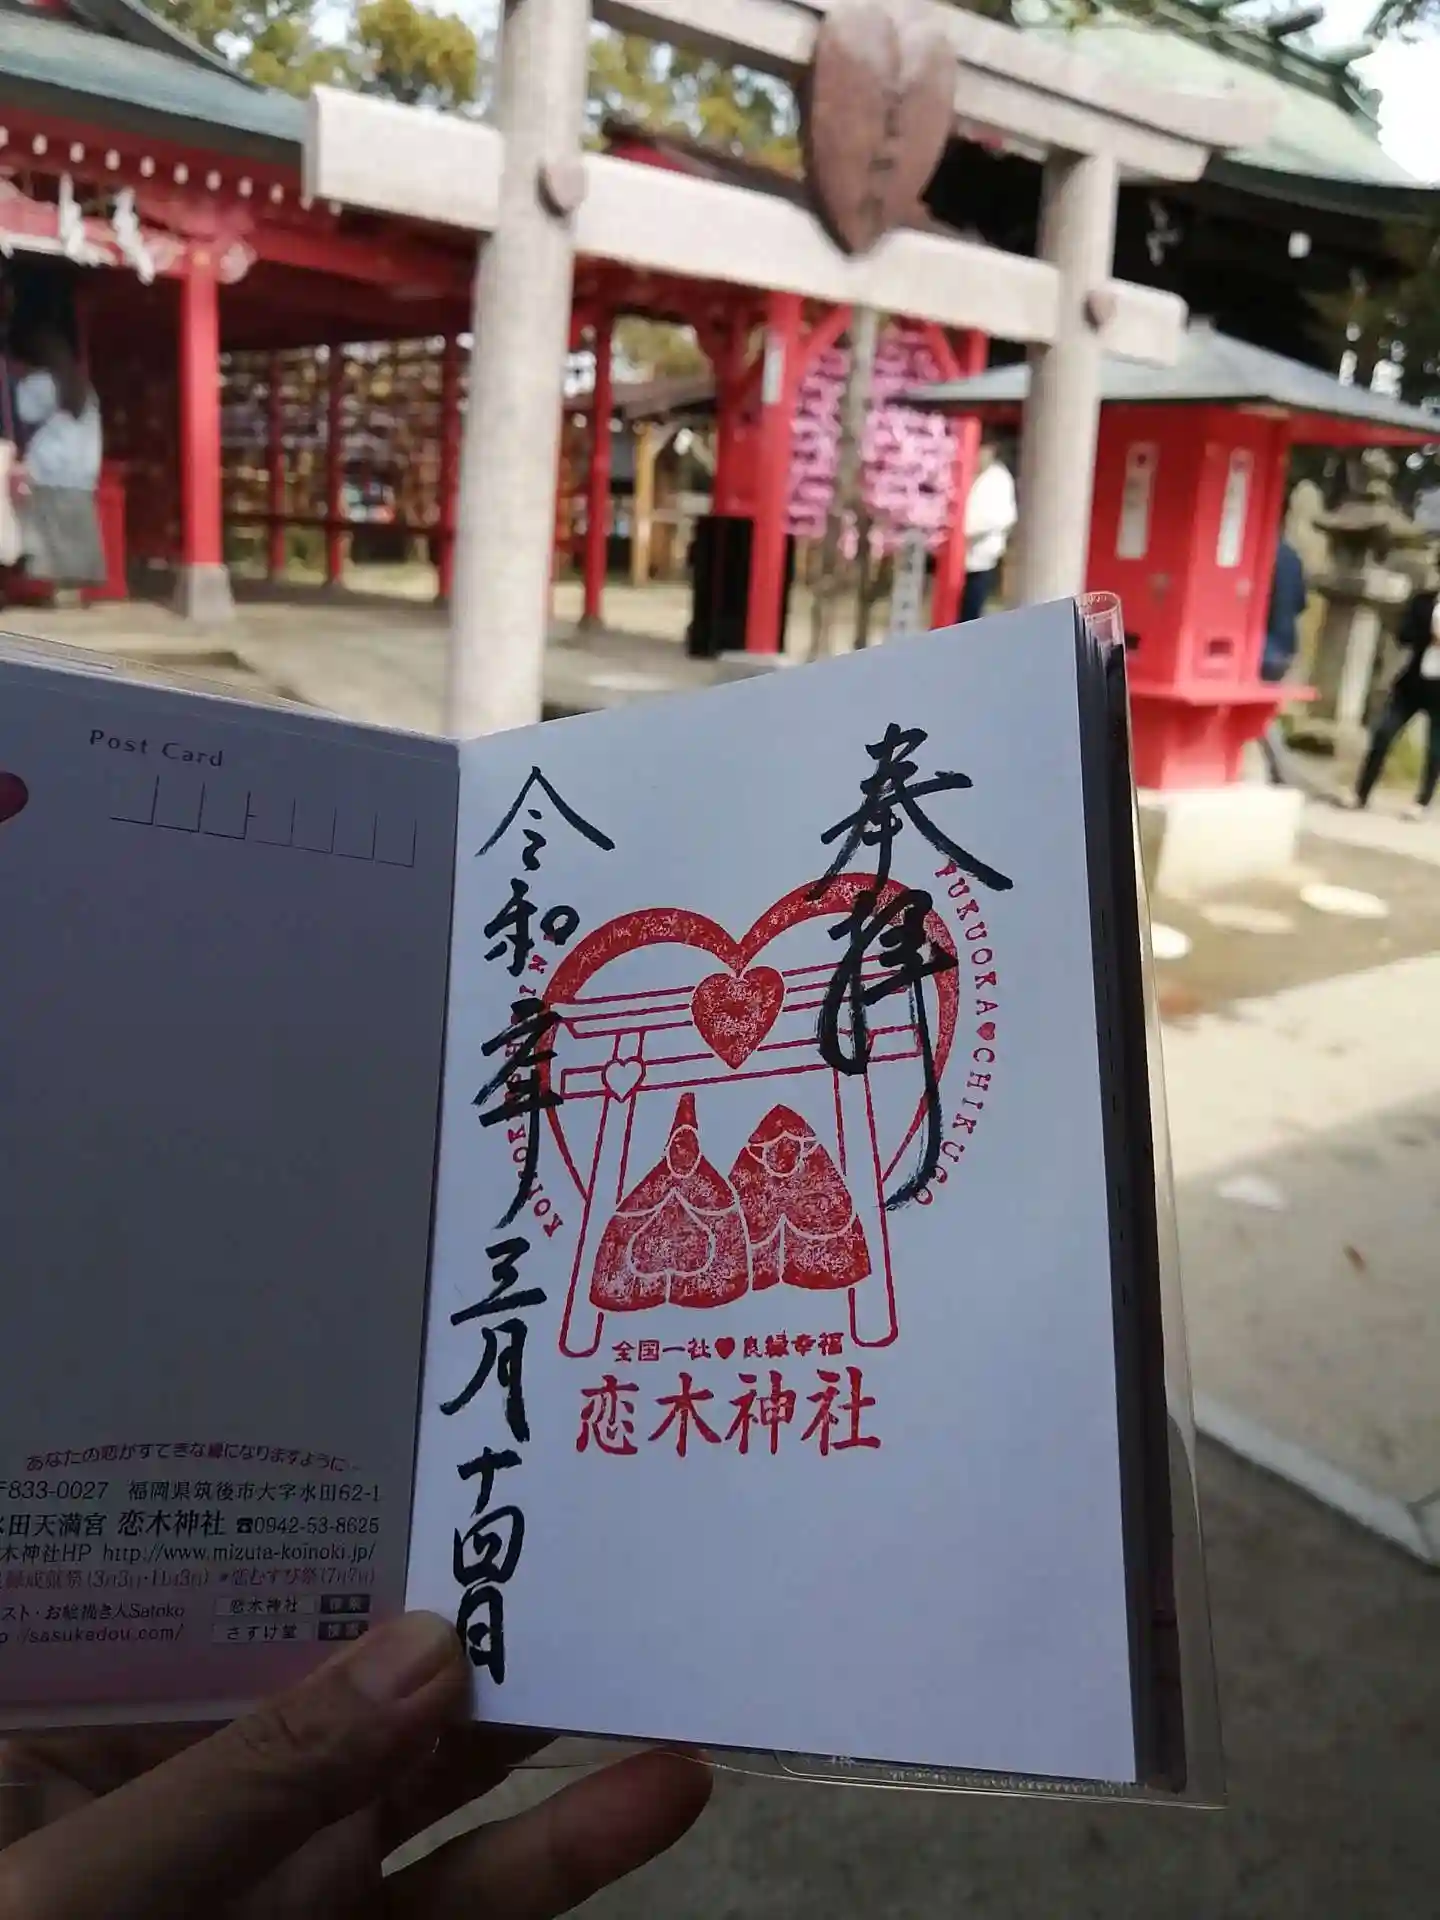 Post Card
あなたの恋がすてきな縁になりますように…
〒833-0027 福岡県筑後市大字水田62-1
水田天満宮 恋木神社 ☎0942-53-8625
木神社HP http://www.mizuta-koinoki.jp/
縁成就祭(3月3日・11月3日) *恋むすび祭(7月7日)
スト・お絵描き人Satoko
://sasukedou.com/
恋木神社 検索
さすけ堂 検索
奉拝
FUKUOKA♥CHIKUGO
全国一社♥良縁幸福
恋木神社
令和
年
三月十四日